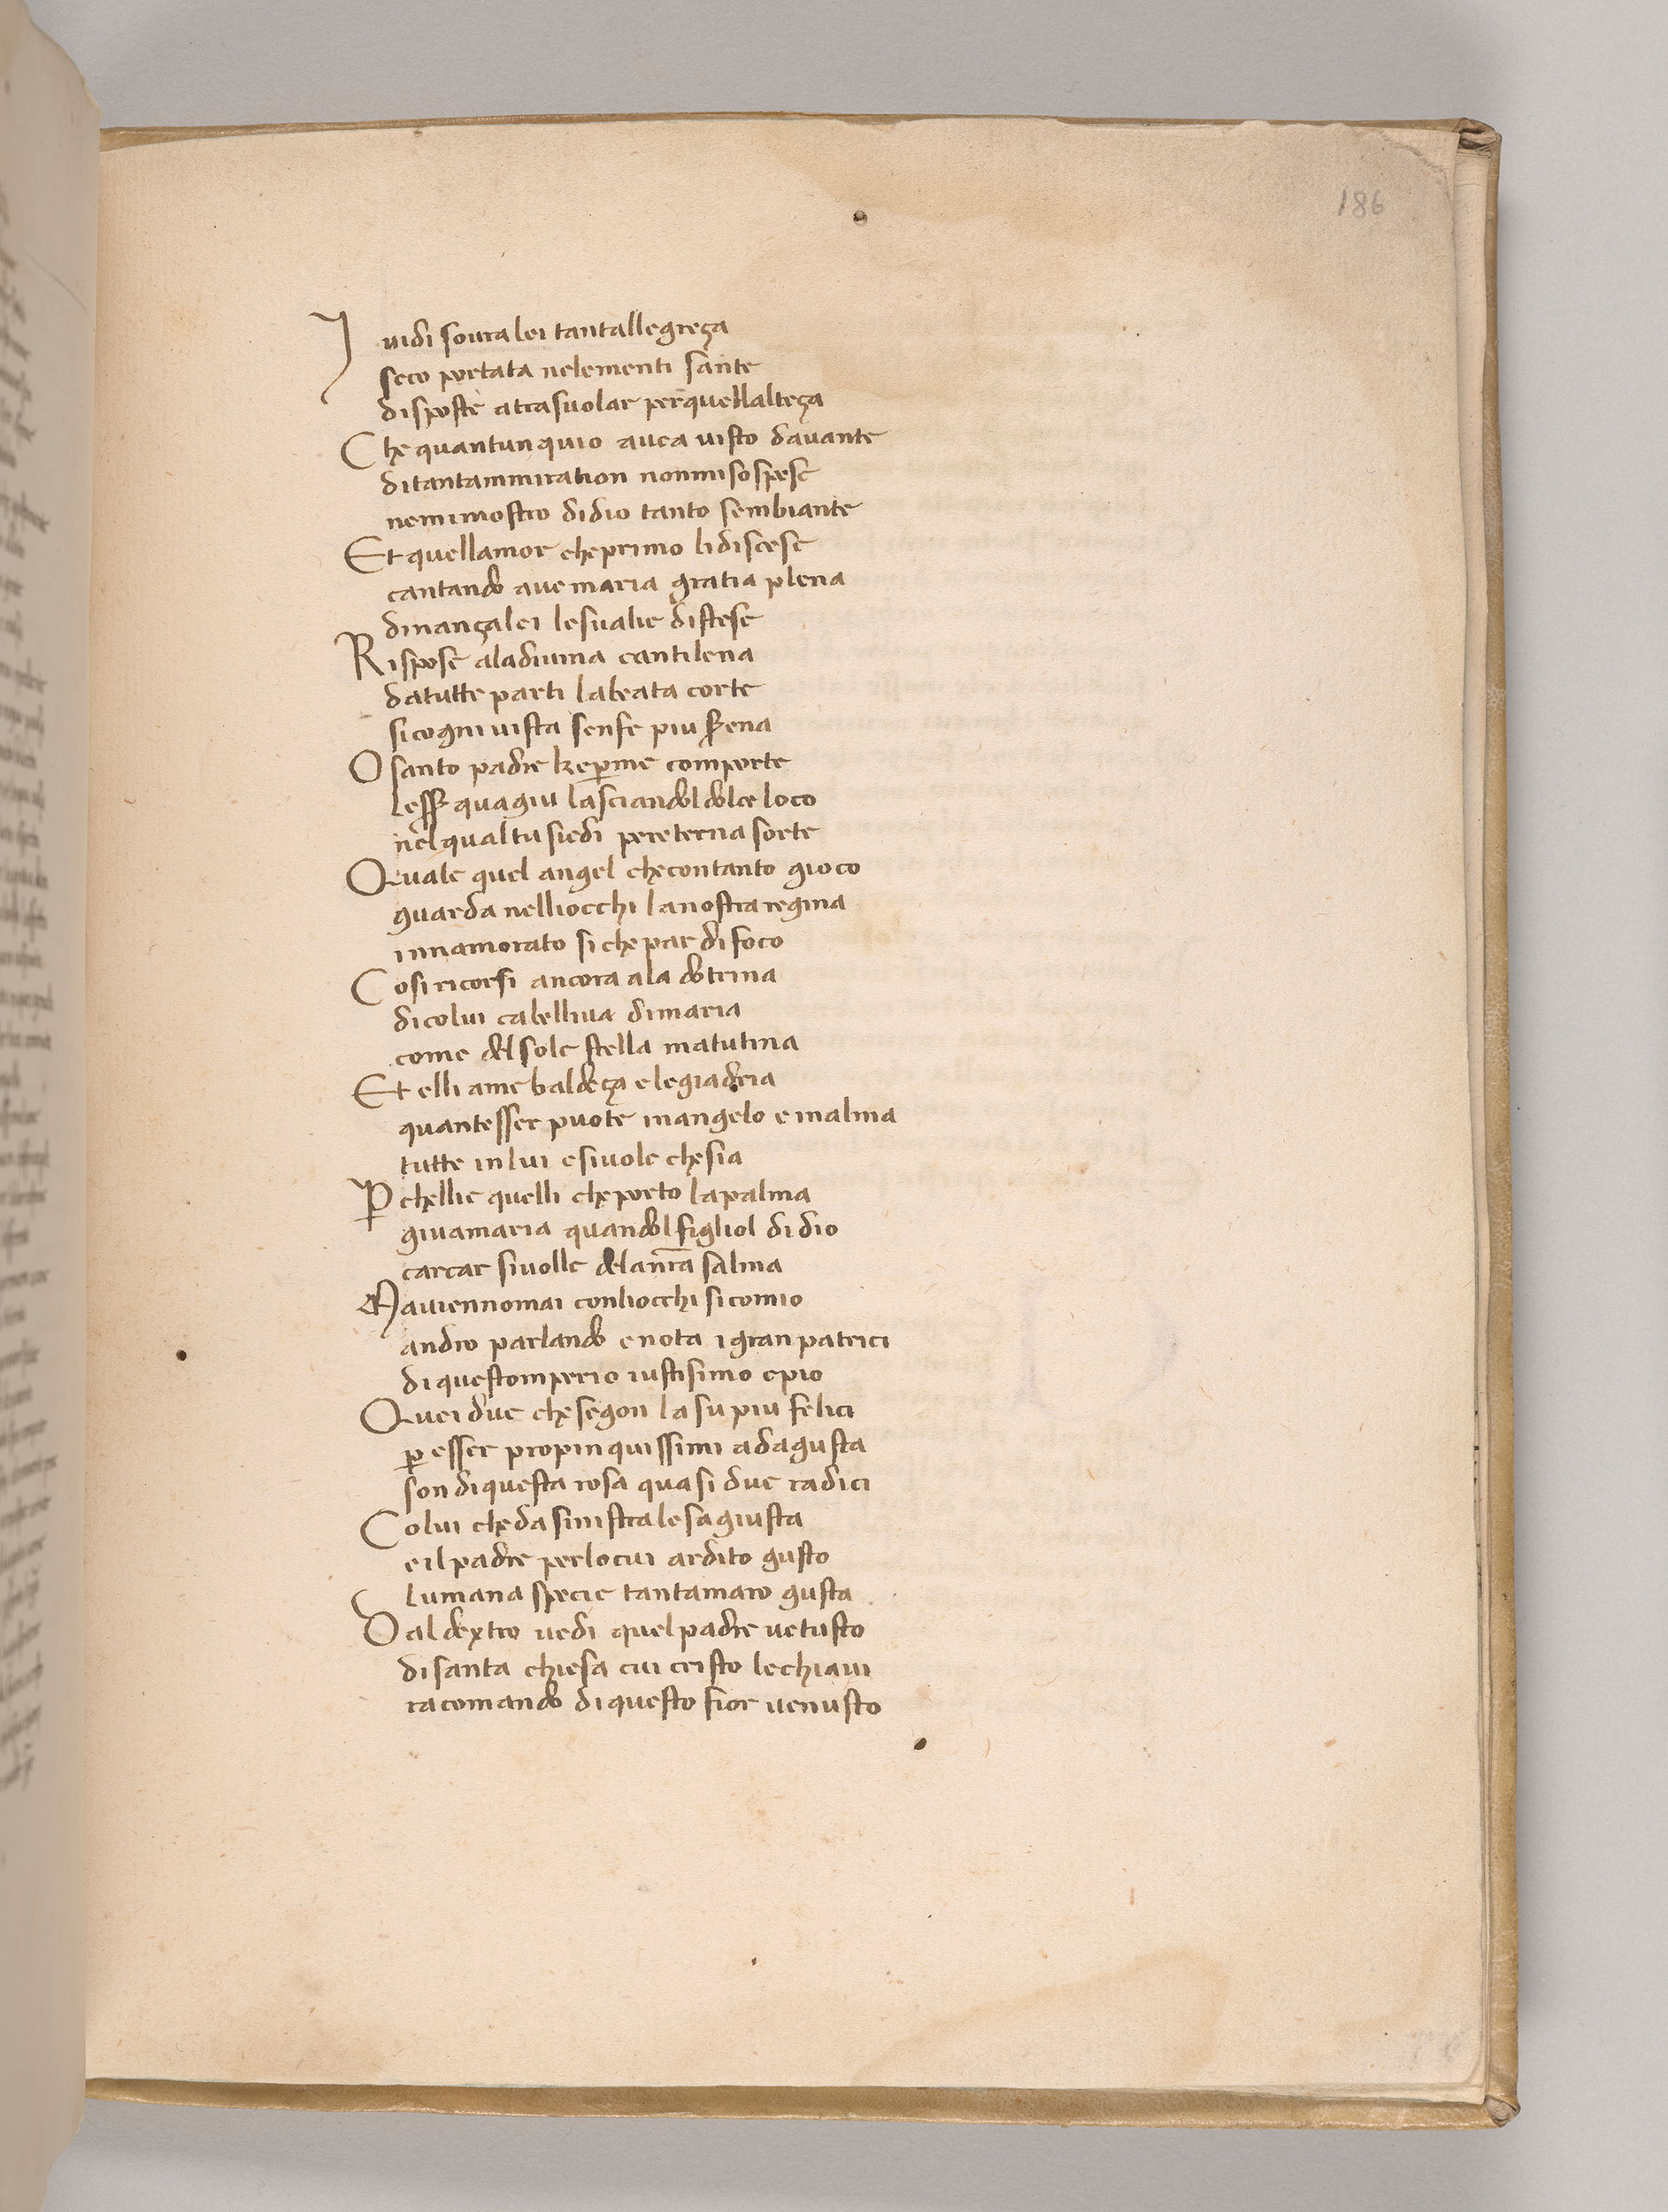 186
I uidi soura lei tantallegreça
seco portata nelementi sante
disposte atrasuolar per quellalteça
Che quantunquio auea uisto dauante
ditantammiration nonmisospese
nemimostro didio tanto sembiante
Et quellamor cheprimo lidiscese
cantando aue maria gratia plena
dinançalei lesualie distese
Rispose aladiuina cantilena
datutte parti labeata corte
sicogni uista senfe piu serena
O santo padre ke per me comporte
lesser quagiu lasciandol dolce loco
nel qualtu siedi pereterna sorte
Quale quel angel checontanto gioco
guarda nelliocchi lanostra regina
innamorato si che par di foco
Cosi ricorsi ancora ala dotrina
dicolui cabelliua dimaria
come del sole stella matutina
Et elli ame baldeça elegiadria
quantesser puote inangelo e inalma
tutte in lui esiuole chesia
Perchellie quelli cheporto lapalma
giuamaria quandol figliol di dio
carcar siuolle delanostra salma
Mauiennomai conliocchi sicomio
andro parlando enota i gran patrici
di questomperio iustisimo epio
Quei due chesegon la su piu felici
per esser propinquissimi adagusta
son diquesta rosa quasi due radici
Colui cheda sinistralesagiusta
eil padre perlocui ardito gusto
lumana specie tantamaro gusta
Dal dextro uedi quel padre uetusto
disanta chiesa cui cristo lechiaui
racomando di questo fior uenusto